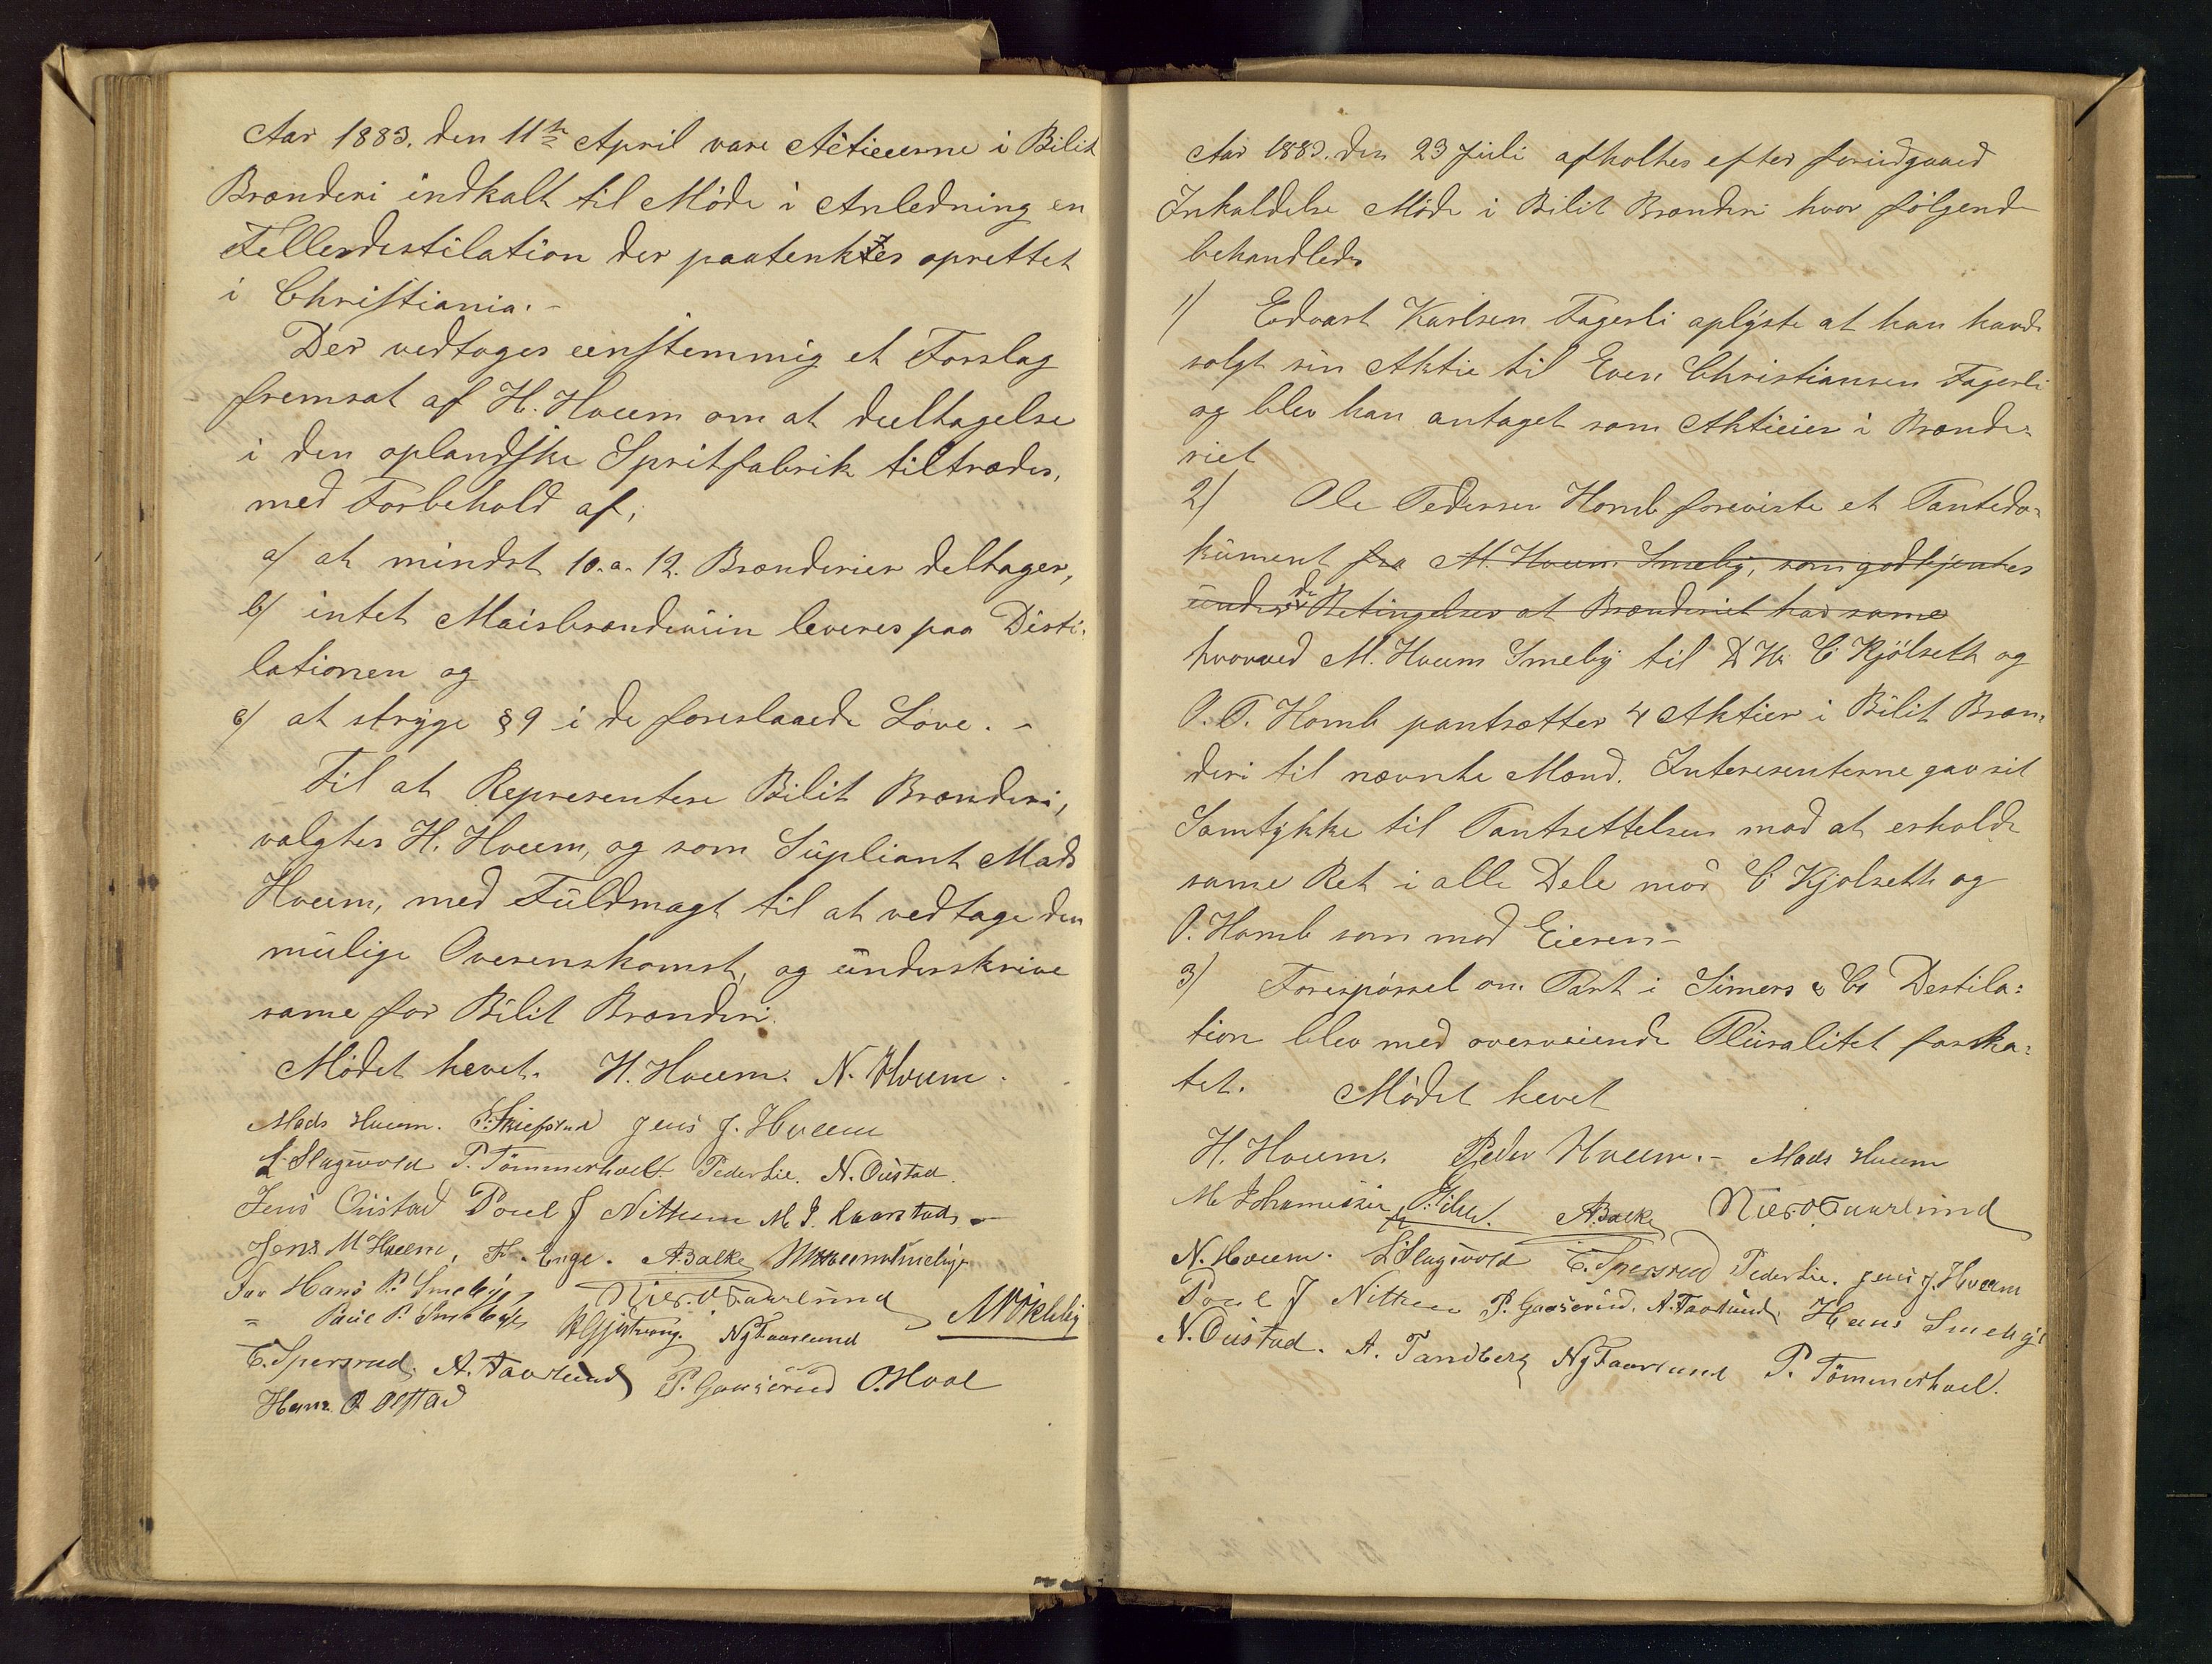 Aar 1883. den 11te April vare Actieeierne i Bilit
Brænderi indkalt til Möde i Anledning en
Fellesdestilation der paatenktes oprettet
i Christiania.-
Der vedtoges eenstemmig et Forslag
fremsat af H. Hveem om at deeltagelse
i den oplandske Spritfabrik tiltrædes,
med Forbehold af,
a/ at mindst 10. a. 12. Brænderier deltager,
b/ intet Maisbrændeviin leveres paa Disti-
lationen og
c/ at stryge §9 i de foreslaaede Love. -
Til at Representere Bilit Brænderi,
valgtes H. Hveem, og som Supliant Mads
Hveem, med Fuldmagt til at vedtage den
mulige Overenskomst, og underskrive
same for Bilit Brænderi.
Mödet hevet. H. Hveem. N. Hveem.
Mads Hveem. P. Jens J. Hveem
L. Slagsvold P. Tömmerhoel. Peder Lie. N. Oustad.
Jens Oustad Povel J Nitteen M. J. Kaarstad -
Jens M Hveem, Fr. Enge. A. Balke MHveem Smeby
For Hans P. Smeby, Nies. O. Faarlund
" Povel P. Smeby N. J. Faarlund MÖkelby
E. Spersrud. A. Faarlund P. Gaaserud O. Hoel
Hans O. Olstad
Aar 1883. den 23 Juli afholtes efter foriudgaaed
Inkaldelse Möde i Bilit Brænderi hvor fölgende
behandledes
1/ Edvart Karlsen Fagerli oplyste at han havde
solgt sin Aktie til Even Christiansen Fagerli
og blev han antaget som Aktieier i Brænde-
riet
2/ Ole Pedersen Homb foreviste et Pantedo-
kument fra M. Hveem Smeby, som godkjentes
under de Betingelser at Brænderiet har same
hvorved M. Hveem Smeby til C Kjölseth og
O. P. Homb pantsætter 4 Aktier i Bilit Bræn-
deri til nævnte Mænd. Interesenterne gav sit
Samtykke til Pantsettelsen mod at erholde
same Ret i alle Dele mod C Kjolseth og
O. Homb som mod Eieren -
3) Forespörssel om Part i Simers & Co Destila-
tion blev med overveiende Pluralitet forska-
tet. Mödet hevet
H. Hveem. Peder Hveem. - Mads Hveem
M Johannesen A. Balke Nies. O. Faarlund
N. Hveem. L. Slagsvold E. Spersrud Peder Lie. Jens J. Hveem
Povel J Nitteen P. Gaaserud. A. Faarlund Hans Smeby
N. Oustad. A. Sandberg N. J. Faarlund P. Tömmerhoel.